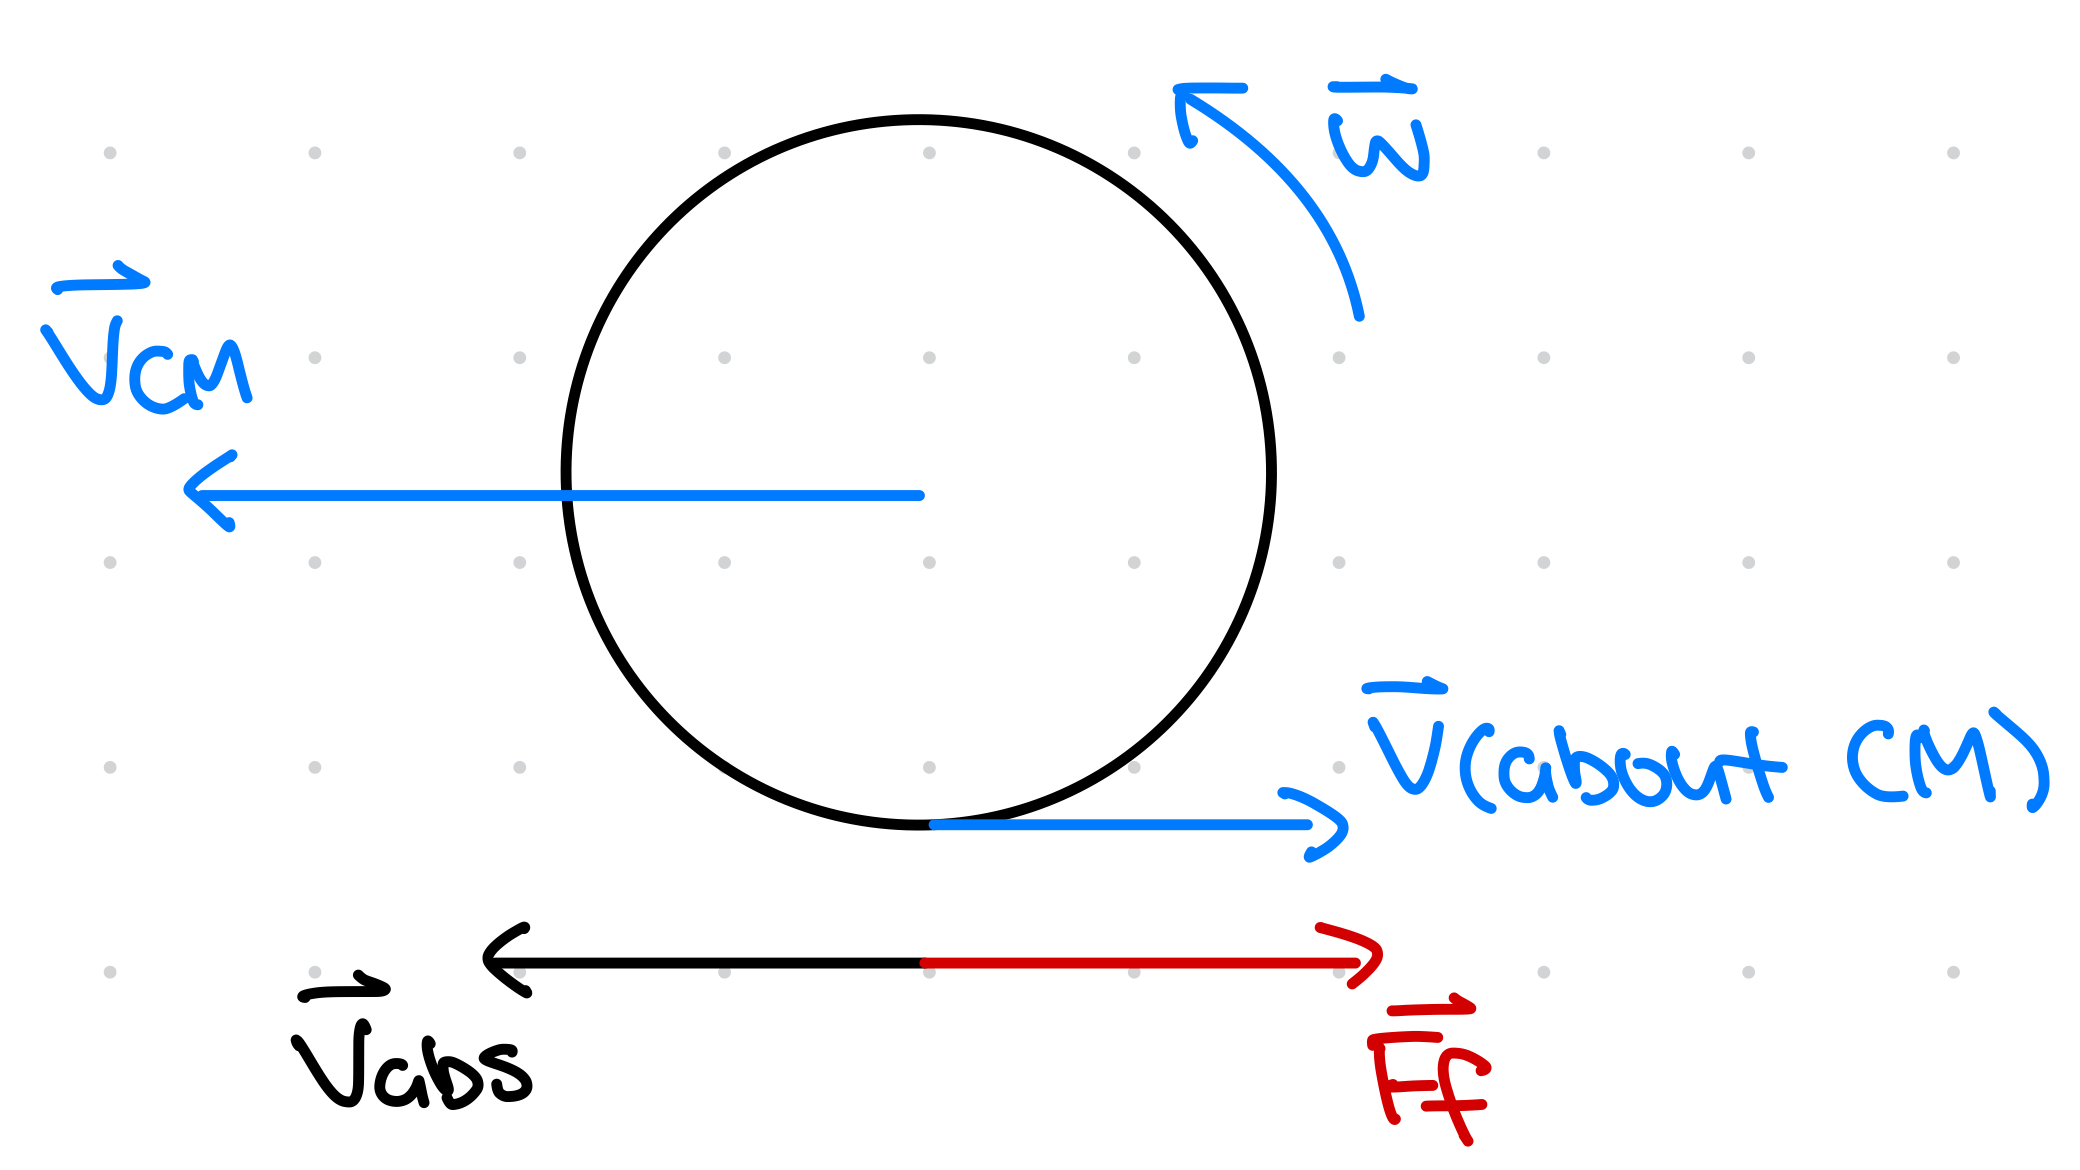 ω
Vcm
V(about CM)
Vabs
Ff